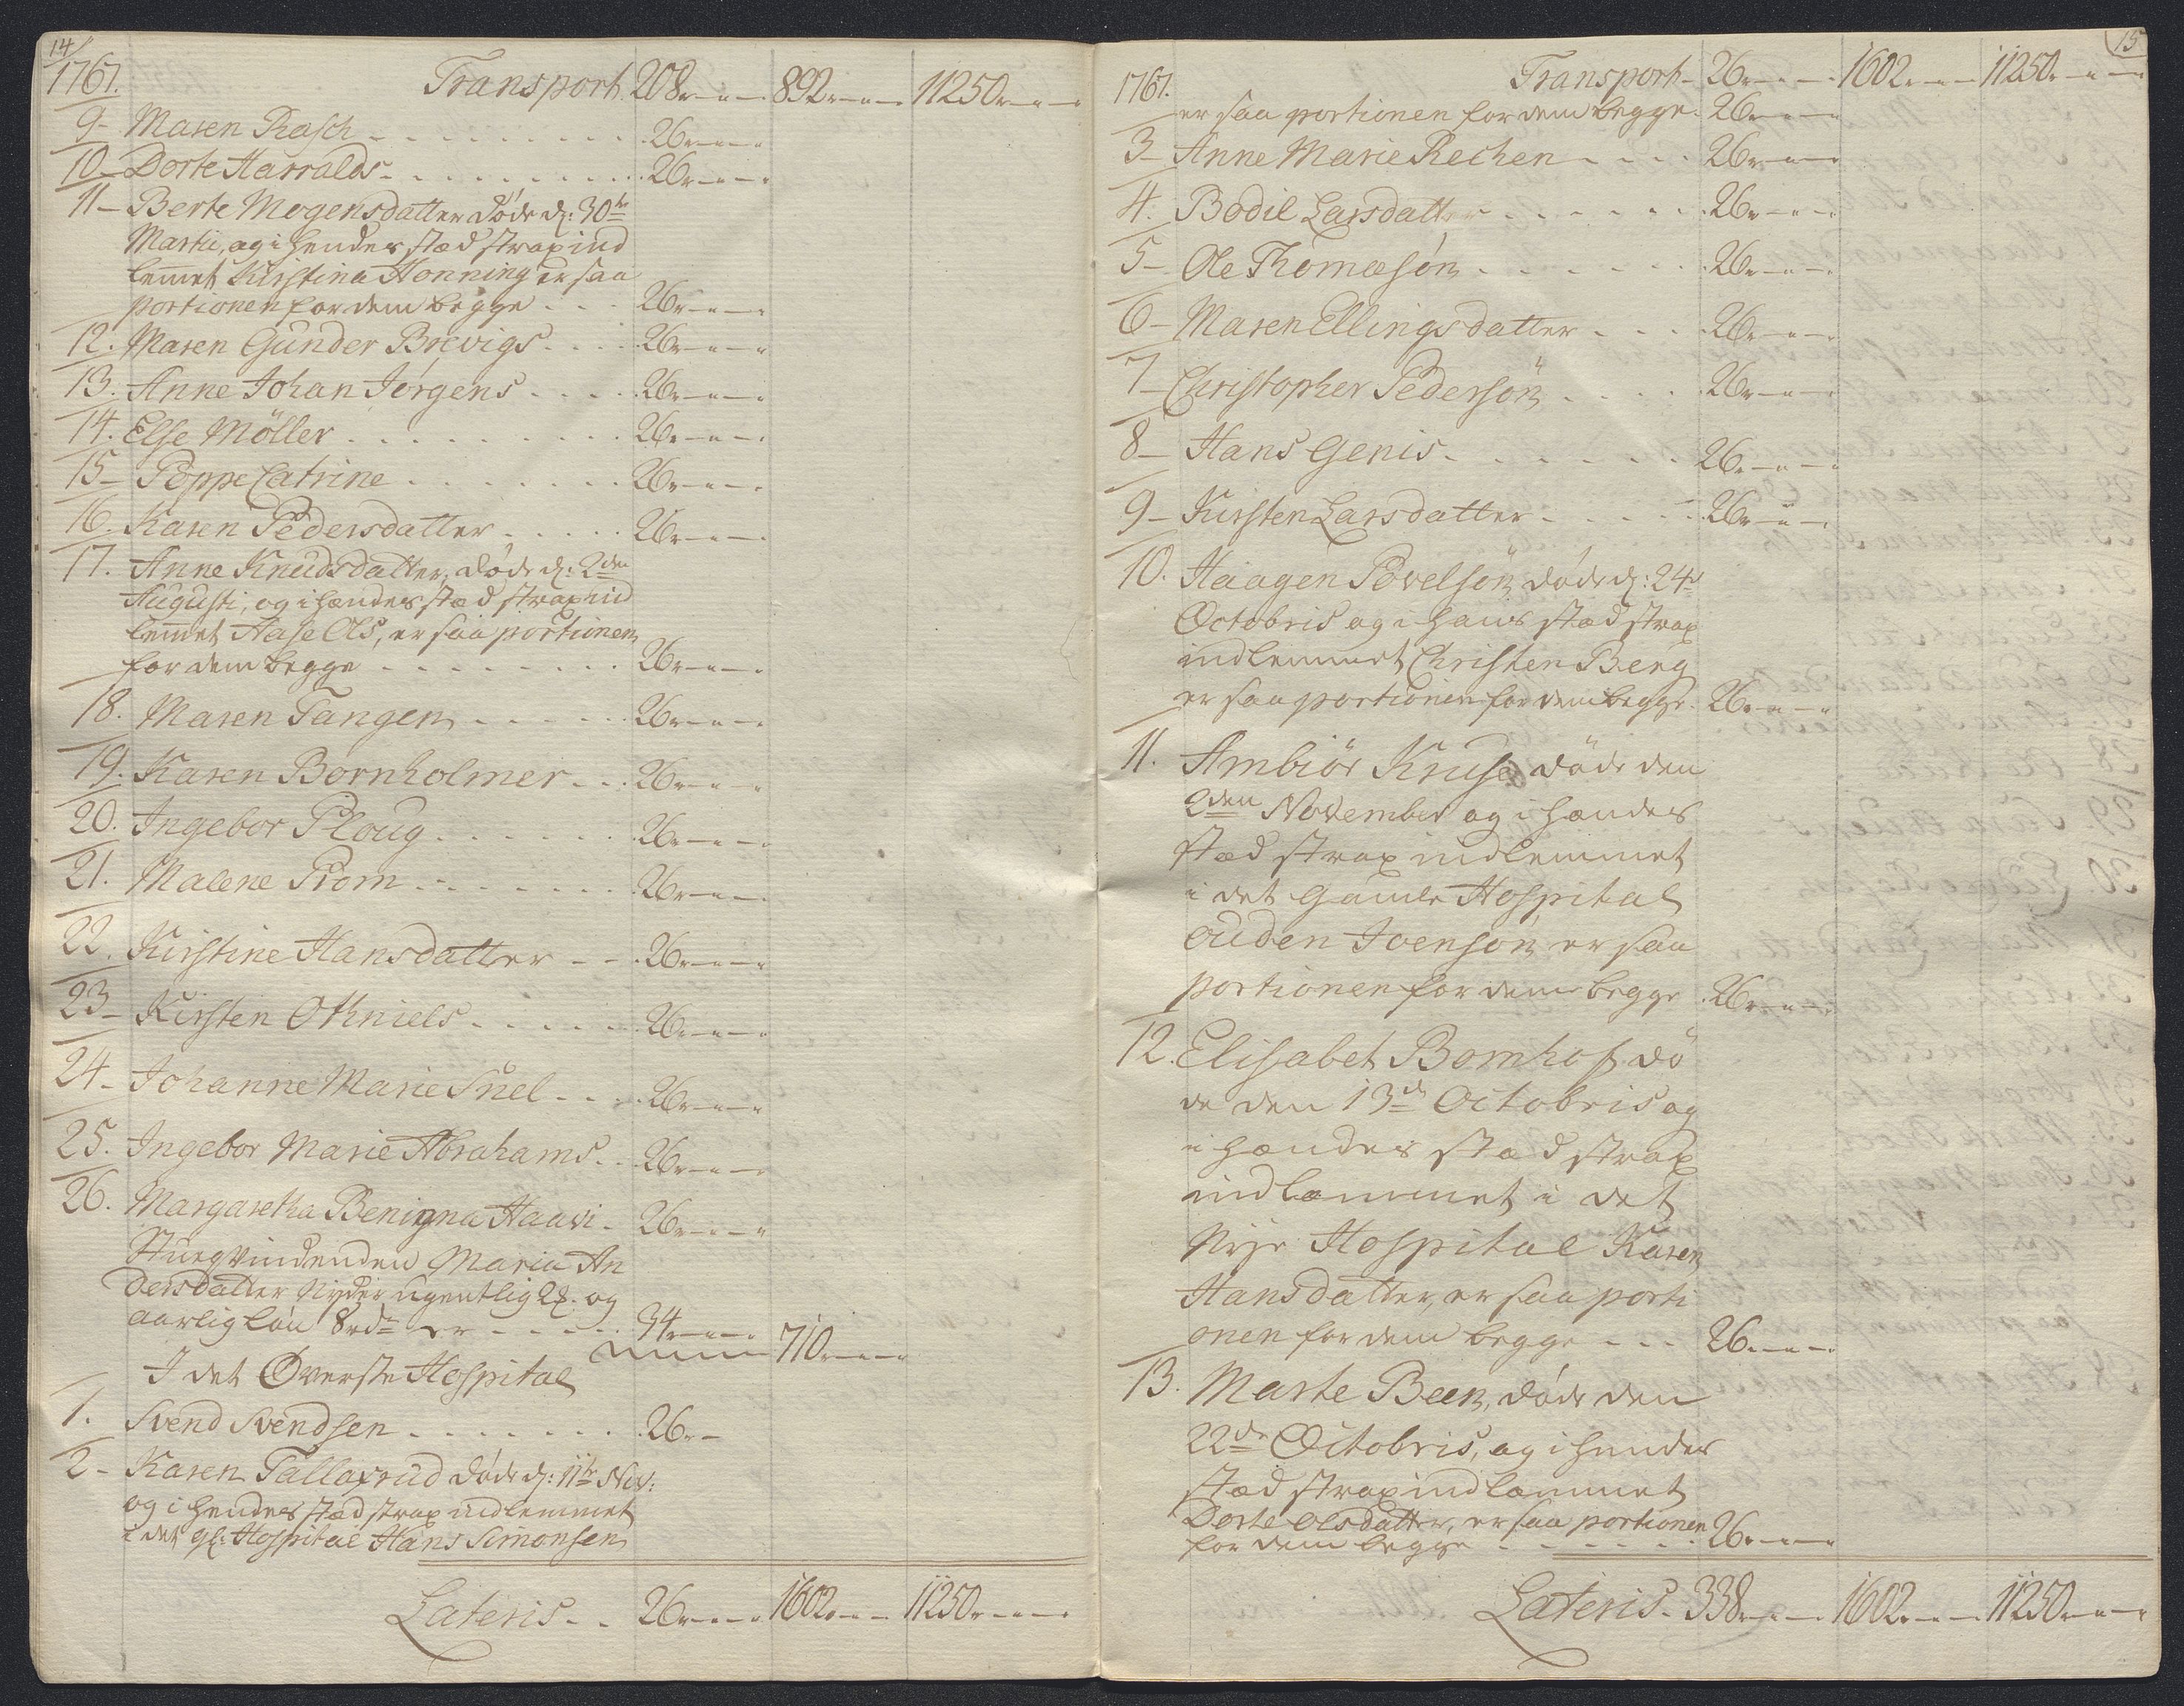 14
1767.
Transport 208 „ — „ — 892 „ — „ — 11250 „ — „ —
9 - Maren Rasch - - - 26 „ — „ —
10 - Dorte Harralds - - - 26 „ — „ —
11 - Berte Mogensdatter døde d: 30te
Martii, og i hendes stæd strax ind
lem̄et Kirstina Honning er saa
portionen for dem begge - - - 26 „ — „ —
12. Maren Gunder Brevigs - - - 26 „ — „ —
13. Anne Johan Jørgens - - - 26 „ — „ —
14. Else Möller - - - 26 „ — „ —
15 - Poppe Catrine - - - 26 „ — „ —
16. Karen Pedersdatter - - - 26 „ — „ —
17. Anne Knudsdatter, døde d: 2den
Augusti, og i hendes stæd strax ind
lem̄et Aase Ols, er saa portionen
for dem begge - - - 26 „ — „ —
18. Maren Tangen - - - 26 „ — „ —
19. Karen Bornholmer - - - 26 „ — „ —
20. Ingebor Ploug - - - 26 „ — „ —
21. Malene Prom - - - 26 „ — „ —
22. Kirstine Hansdatter - - - 26 „ — „ —
23 - Kirsten Othniels - - - 26 „ — „ —
24 - Johanne Marie Snel - - - 26 „ — „ —
25. Ingebor Marie Abrahams - - - 26 „ — „ —
26. Margaretha Benigna Haavi - 26 „ — „ —
Stuegvindenden Maria An
dersdatter Nyder ugentlig 2 og
aarlig løn 8 rdr er - - - 34 „ — „ — 710 „ — „ —
I det Øverste Hospital
1. Svend Svendsen - - - 26 „ -
2 - Karen Tallaxrud døde d: 11te Nov:
og i hendes stæd strax indlemmet
i det gl: Hospital Hans Simonsen
Lateris - - 26 „ — „ — 1602 „ — „ — 11250 „ — „ —
15
1767.
Transport - 26 „ — „ — 1602 „ — „ — 11250 „ — „ —
er saa portionen for dem begge. 26 „ — „ —
3 - Anne Marie Rechen - - - 26 „ — „ —
4. Bodil Larsdatter - - - 26 „ — „ —
5 - Ole Thomæsøn - - - 26 „ — „ —
6 - Maren Ellingsdatter - - - 26 „ — „ —
7 - Christopher Pedersøn - - - 26 „ — „ —
8 - Hans Genis - - - 26 „ — „ —
9 - Kirsten Larsdatter - - - 26 „ — „ —
10. Haagen Povelsøn døde d: 24de
Octobris og i hans stæd strax
indlemmet Christen Berg
er saa portionen for dem begge. 26 „ — „ —
11. Ambiør Kruse døde den
2den November og i hendes
stæd strax indlemmet
i det gamle Hospital
Ouden Joensøn er saa
portionen for dem begge 26 „ — „ —
12. Elisabet Bomhof dø
de den 13de Octobris og
i hendes stæd strax
indlemmet i det
Nye Hospital Karen
Hansdatter, er saa porti
onen for dem begge - - - 26 „ — „ —
13. Marte Been, døde den
22de Octobris, og i hendes
stæd strax indlemmet
Dorte Olsdatter, er saa portionen
for dem begge - - - 26 „ — „ —
Lateris - 338 „ — „ — 1602 „ — „ — 11250 „ — „ —